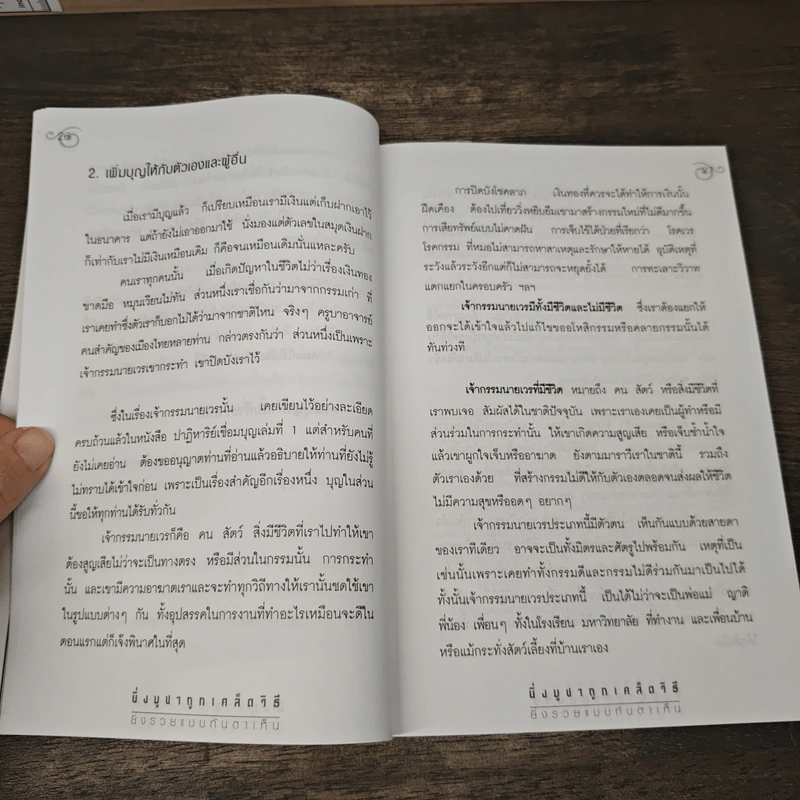 2. เพิ่มบุญให้กับตัวเองและผู้อื่น
เมื่อเรามีบุญแล้ว ก็เปรียบเหมือนเรามีเงินแต่เก็บฝากเอาไว้
ในธนาคาร แต่ถ้ายังไม่เอาออกมาใช้ นั่งมองแต่ตัวเลขในสมุดเงินฝาก
ก็เท่ากับเราไม่มีเงินเหมือนเดิม ก็คือจนเหมือนเดิมนั่นแหละครับ
คนเราทุกคนนั้น เมื่อเกิดปัญหาในชีวิตไม่ว่าเรื่องเงินทอง
ขาดมือ หมุนเวียนไม่ทัน ส่วนหนึ่งเราเชื่อกันว่ามาจากกรรมเก่า ที่
เราเคยทำซึ่งตัวเราก็บอกไม่ได้ว่ามาจากชาติไหน จริงๆ ครูบาอาจารย์
คนสำคัญของเมืองไทยหลายท่าน กล่าวตรงกันว่า ส่วนหนึ่งเป็นเพราะ
เจ้ากรรมนายเวรเขากระทำ เขาปิดบังเราไว้
ซึ่งในเรื่องเจ้ากรรมนายเวรนั้น เคยเขียนไว้อย่างละเอียด
ครบถ้วนแล้วในหนังสือ ปาฏิหาริย์เชื่อมบุญเล่มที่ 1 แต่สำหรับคนที่
ยังไม่เคยอ่าน ต้องขออนุญาตท่านที่อ่านแล้วอธิบายให้ท่านที่ยังไม่รู้
ไม่ทราบได้เข้าใจก่อน เพราะเป็นเรื่องสำคัญอีกเรื่องหนึ่ง บุญในส่วน
นี้ขอให้ทุกท่านได้รับทั่วกัน
เจ้ากรรมนายเวรก็คือ คน สัตว์ สิ่งมีชีวิตที่เราไปทำให้เขา
ต้องสูญเสียไม่ว่าจะเป็นทางตรง หรือมีส่วนในกรรมนั้น การกระทำ
นั้น และเขามีความอาฆาตเราและจะทำทุกวิถีทางให้เรานั้นชดใช้เขา
ในรูปแบบต่างๆ กัน ทั้งอุปสรรคในการงานที่ทำอะไรเหมือนจะดีใน
ตอนแรกแต่ก็เจ๊งพินาศในที่สุด
ยิ่งบูชาถูกเคล็ดวิธี
ยิ่งรวยแบบทันตาเห็น
การปิดบังโชคลาภ เงินทองที่ควรจะได้ทำให้การเงินนั้น
ฝืดเคือง ต้องไปเที่ยววิ่งหยิบยืมเขามาสร้างกรรมใหม่ที่ไม่ดีมากขึ้น
การเสียทรัพย์แบบไม่คาดฝัน การเจ็บไข้ได้ป่วยที่เรียกว่า โรคเวร
โรคกรรม ที่หมอไม่สามารถหาสาเหตุและรักษาให้หายได้ อุบัติเหตุที่
ระวังแล้วระวังอีกแต่ก็ไม่สามารถจะหยุดยั้งได้ การทะเลาะวิวาท
แตกแยกในครอบครัว ฯลฯ
เจ้ากรรมนายเวรมีทั้งมีชีวิตและไม่มีชีวิต ซึ่งเราต้องแยกให้
ออกจะได้เข้าใจแล้วไปแก้ไขขออโหสิกรรมหรือคลายกรรมนั้นได้
ทันท่วงที
เจ้ากรรมนายเวรที่มีชีวิต หมายถึง คน สัตว์ หรือสิ่งมีชีวิตที่
เราพบเจอ สัมผัสได้ในชาติปัจจุบัน เพราะเราเองเคยเป็นผู้ทำหรือมี
ส่วนร่วมในการกระทำนั้น ให้เขาเกิดความสูญเสีย หรือเจ็บช้ำน้ำใจ
แล้วเขาผูกใจเจ็บหรืออาฆาต ยังตามมาราวีเราในชาตินี้ รวมถึง
ตัวเราเองด้วย ที่สร้างกรรมไม่ดีให้กับตัวเองตลอดจนส่งผลให้ชีวิต
ไม่มีความสุขหรืออดๆ อยากๆ
เจ้ากรรมนายเวรประเภทนี้มีตัวตน เห็นกันแบบด้วยสายตา
ของเราทีเดียว อาจจะเป็นทั้งมิตรและศัตรูไปพร้อมกัน เหตุที่เป็น
เช่นนั้นเพราะเคยทำทั้งกรรมดีและกรรมไม่ดีร่วมกันมาเป็นไปได้
ทั้งนั้นเจ้ากรรมนายเวรประเภทนี้ เป็นได้ไม่ว่าจะเป็นพ่อแม่ ญาติ
พี่น้อง เพื่อนๆ ทั้งในโรงเรียน มหาวิทยาลัย ที่ทำงาน และเพื่อนบ้าน
หรือแม้กระทั่งสัตว์เลี้ยงที่บ้านเราเอง
ยิ่งบูชาถูกเคล็ดวิธี
ยิ่งรวยแบบทันตาเห็น